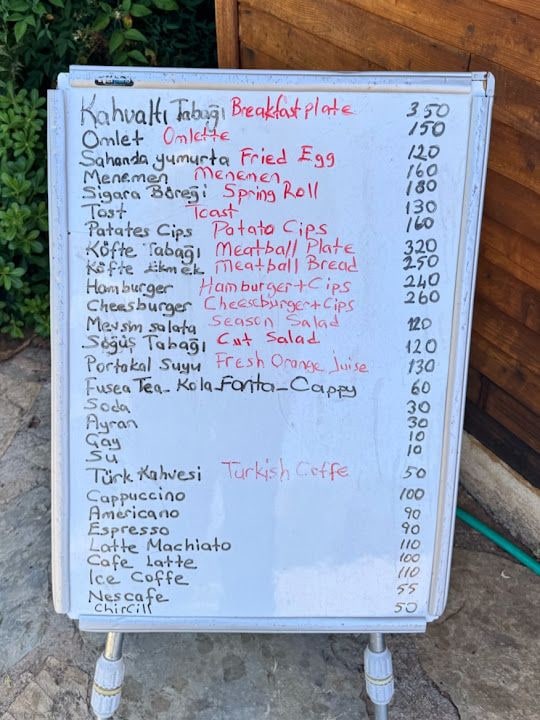 Kahvaltı Tabağı Breakfast plate 350
Omlet Omlette 150
Sahanda yumurta Fried Egg 120
Menemen Menemen 160
Sigara Böreği Spring Roll 180
Tost Toast 130
Patates Cips Potato Cips 160
Köfte Tabağı Meatball Plate 320
Köfte Ekmek Meatball Bread 250
Hamburger Hamburger+Cips 240
Cheesburger Cheeseburger+Cips 260
Mevsim salata Season Salad 120
Söğüş Tabağı Cut Salad 120
Portakal Suyu Fresh Orange Juise 130
Fusea Tea_Kola_Fanta_Cappy 60
Soda 30
Ayran 30
Çay 10
Su 10
Türk Kahvesi Turkish Coffe 50
Cappuccino 100
Americano 90
Espresso 90
Latte Machiato 110
Cafe Latte 100
Ice Coffe 110
Nescafe 55
Chircill 50